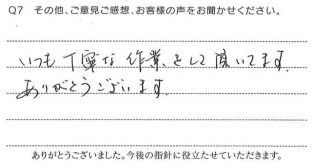 Q7 その他、ご意見ご感想、お客様の声をお聞かせください。
いつも丁寧な作業をして頂いてます。
ありがとうございます。
ありがとうございました。今後の指針に役立たせていただきます。